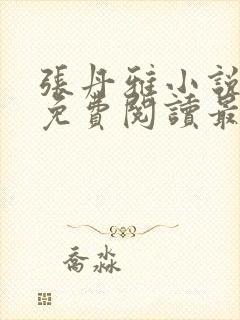 張丹雅小說
免費閱讀最
喬淼